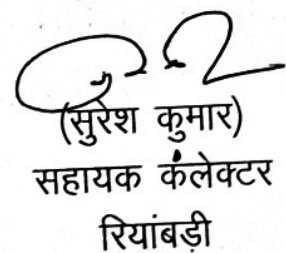 (सुरेश कुमार)
सहायक कलेक्टर
रियांबड़ी